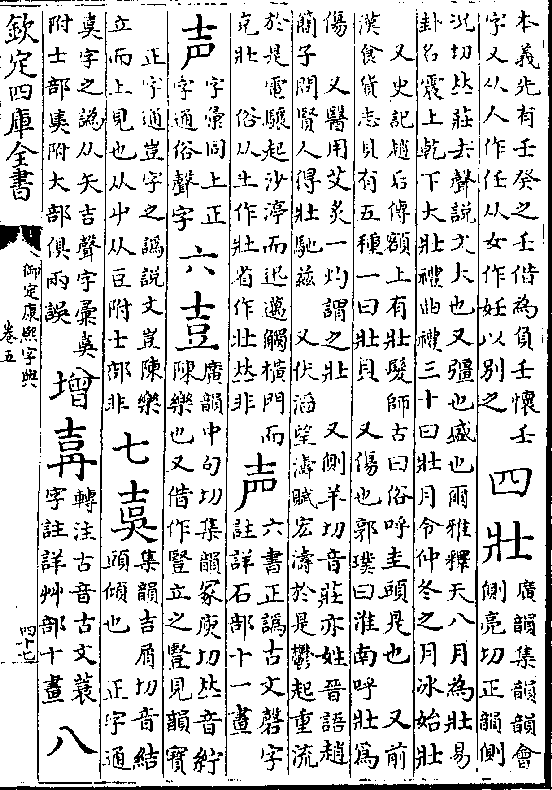 本義先有壬癸之壬借為負壬懷壬
字又从人作任从女作妊以别之
四
壯
廣韻集韻韻會
側亮切正韻側
况切𠀤莊去聲說文大也又彊也盛也爾雅釋天八月為壯易
卦名震上乾下大壯禮曲禮三十曰壯月令仲冬之月冰始壯
又史記趙后傳額上有壯髮師古曰俗呼圭頭是也 又前
漢食貨志貝有五種一曰壯貝 又傷也郭璞曰淮南呼壯為
傷 又醫用艾灸一灼謂之壯 又側羊切音莊亦姓晉語趙
簡子問賢人得壯馳兹 又伏滔望濤賦宏濤於是鬱起重流
於是電驤起沙渟而迅邁觸横門而
克壯 俗从土作壯省作壮𠀤非
声
六書正譌古文磬字
註詳石部十一畫
声
字彙同上正
字通俗聲字
六
壴
廣韻中句切集韻冢庾切𠀤音紵
陳樂也又借作豎立之豎見韻寶
正字通豈字之譌說文豈陳樂
立而上見也从屮从豆附士部非
七
㚖
集韻吉屑切音結
頭傾也 正字通
㚖字之譌从矢吉聲字彙㚖
附士部㚖附大部俱兩誤
增
𡔷
轉注古音古文蓑
字註詳艸部十畫
八
欽定四庫全書
御定康熙字典
卷五
四十七